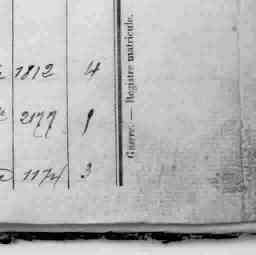 1812 4
2177 1
1174 3
Guerre. — Registre matricule.